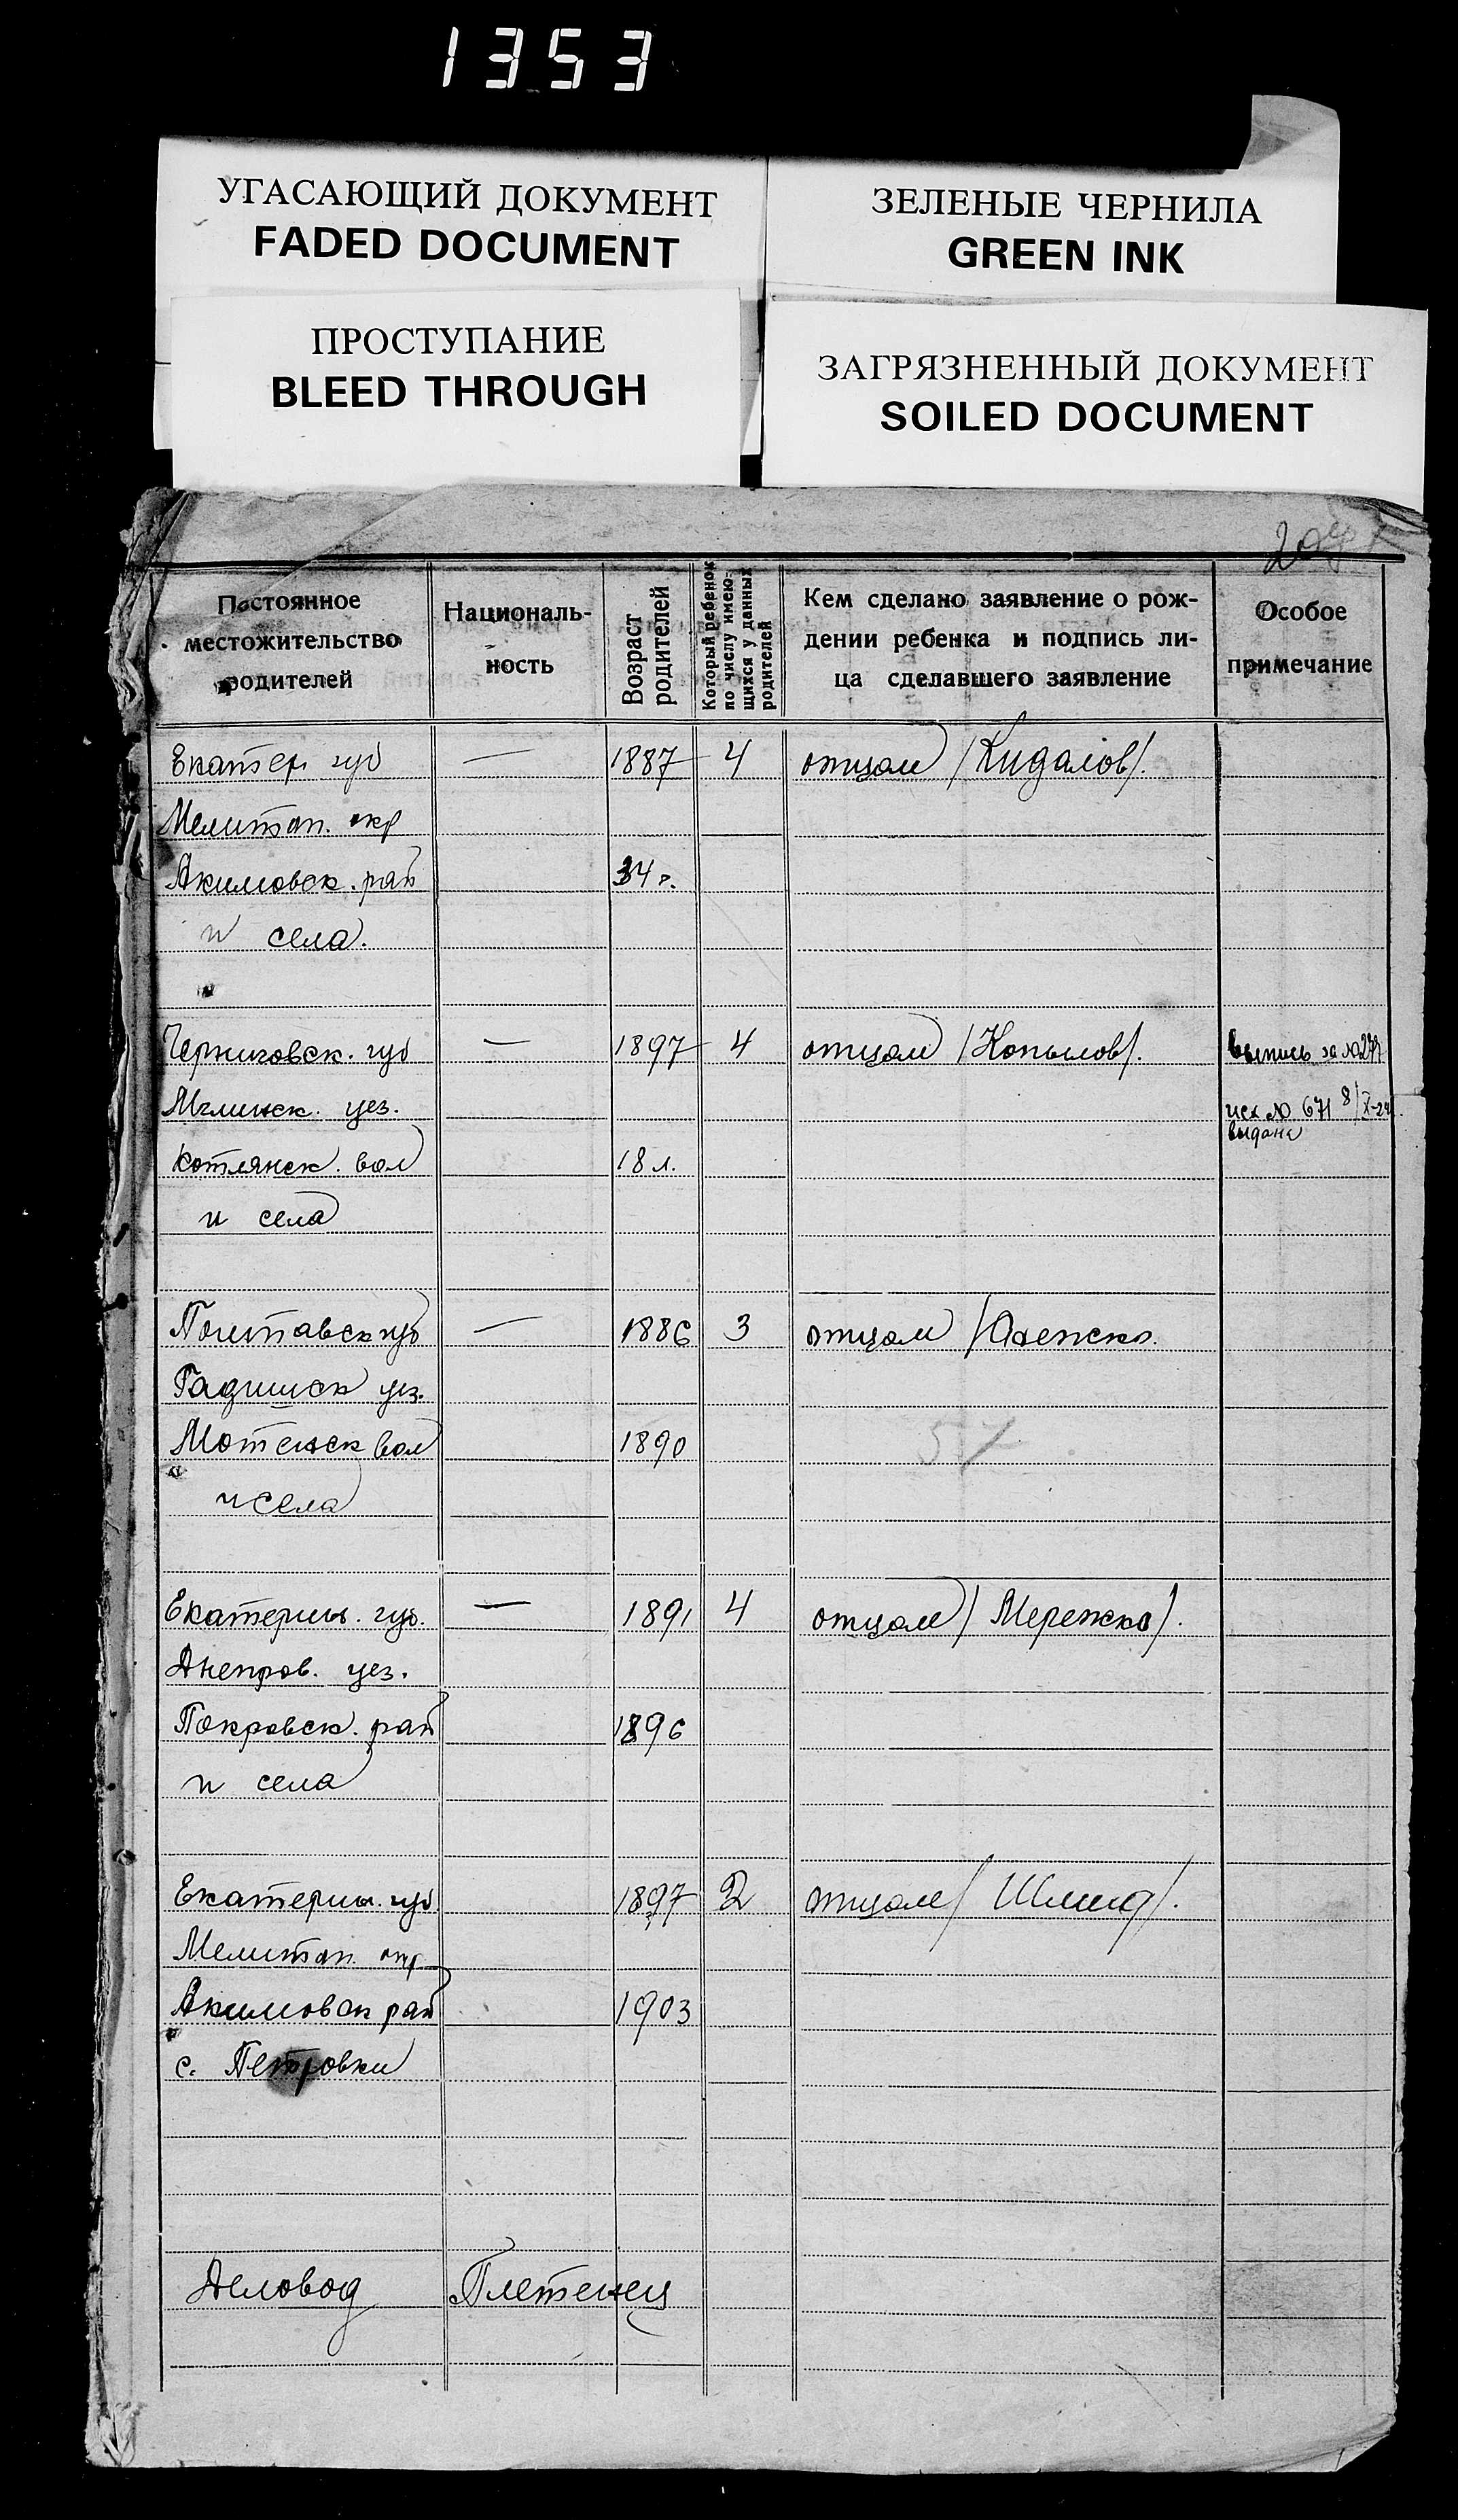 1353
УГАСАЮЩИЙ ДОКУМЕНТ
FADED DOCUMENT
ЗЕЛЕНЫЕ ЧЕРНИЛА
GREEN INK
ПРОСТУПАНИЕ
BLEED THROUGH
ЗАГРЯЗНЕННЫЙ ДОКУМЕНТ
SOILED DOCUMENT
Постоянное
местожительство
родителей
Националь-
ность
Возраст
родителей
Который ребенок
по числу имею-
щихся у данных
родителей
Кем сделано заявление о рож-
дении ребенка и подпись ли-
ца сделавшего заявление
Особое
примечание
Екатер губ — 1887 4 отцом /Кидалов/.
Мелитоп. окр
Акимовск. рай 34 г.
и села.
Черниговск. губ — 1897 4 отцом /Копылов/. выпись за №
Мглинск. уез. исх № 671 8/X-24.
выдана
Котлянск. вол 18 л.
и села
Полтавск губ — 1886 3 отцом
Гадичиск уез.
вол 1890
57
и села
Екатерин. губ. — 1891 4 отцом /Мережко/.
Днепров. уез.
Покровск. рай 1896
и села
Екатерин. губ 1897 2 отцом / Шмид/.
Мелитоп. окр
Акимовск рай 1903
с. Петровки
Деловод Плетенец